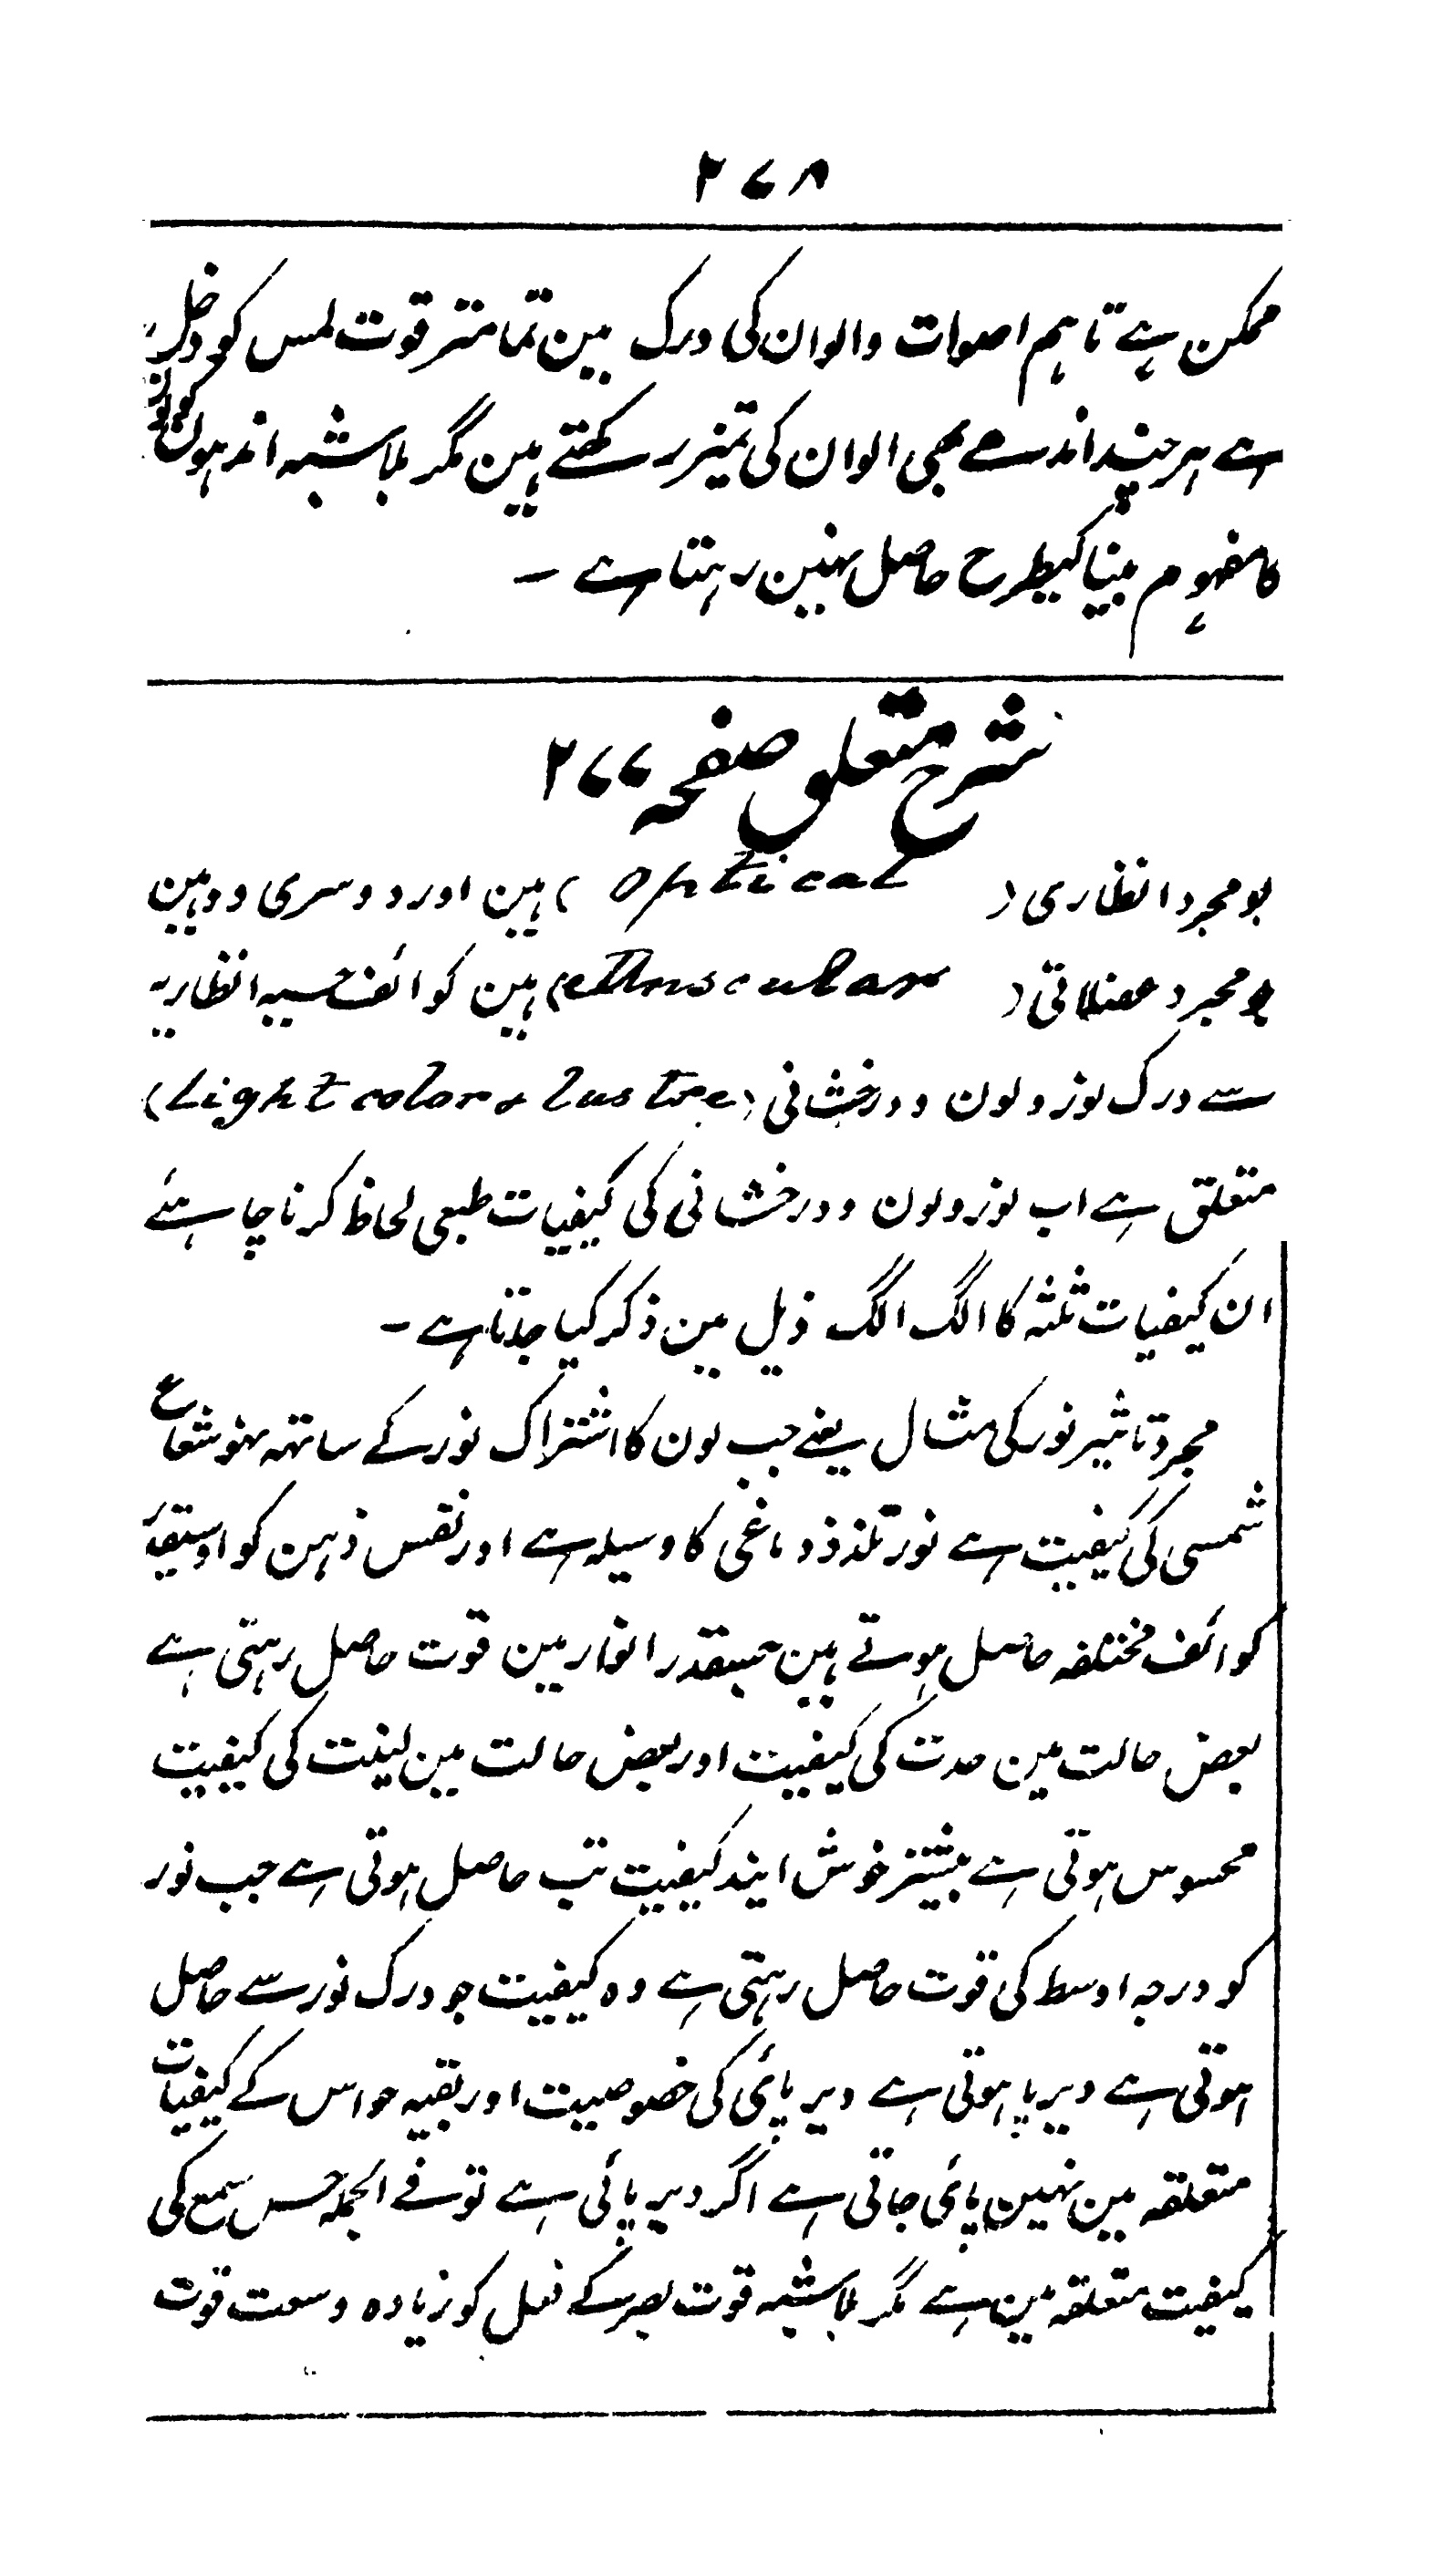 ۲۷۸
ممکن ہے تاہم اصوات والوان کی درک مین تمامتر قوت لمس کو دخل
ہے ہر چند اندھے بھی الوان کی تمیز رکھتے ہین مگر بلا شبہ اندہون کو لون
کا مفہوم بینا کیطرح حاصل نہین رہتا ہے ۔
شرح متعلق صفحہ ۲۷۷
جو مجرد انظاری ( Optical ) ہین اور دوسری وہ ہین
جو مجرد عضلاتی ( Muscular ) ہین کوائف حسیہ انظاریہ
سے درک نور و لون و درخشانی (Light color & lustre)
متعلق ہے اب نور و لون و درخشانی کی کیفیات طبعی لحاظ کرنا چاہئے
ان کیفیات ثلثہ کا الگ الگ ذیل مین ذکر کیا جاتا ہے ۔
مجرد تاثیر نور کی مثال یعنے جب لون کا اشتراک نور کے ساتھہ نہو شعاع
شمسی کی کیفیت ہے نور تلذذ دماغی کا وسیلہ ہے اور نفس ذہن کو اوسیقدر
کوائف مختلفہ حاصل ہوتے ہین جسقدر انوار مین قوت حاصل رہتی ہے
بعض حالت مین حدت کی کیفیت اور بعض حالت مین لینت کی کیفیت
محسوس ہوتی ہے بیشتر خوش ایند کیفیت تب حاصل ہوتی ہے جب نور
کو درجہ اوسط کی قوت حاصل رہتی ہے وہ کیفیت جو درک نور سے حاصل
ہوتی ہے دیرپا ہوتی ہے دیر پائی کی خصوصیت اور بقیہ حواس کے کیفیات
متعلقہ مین نہین پائی جاتی ہے اگر دیر پائی ہے تو فے الجملہ حس سمع کی
کیفیت متعلقہ مین ہے مگر بلا شبہ قوت بصر کے فعل کو زیادہ وسعت قوت